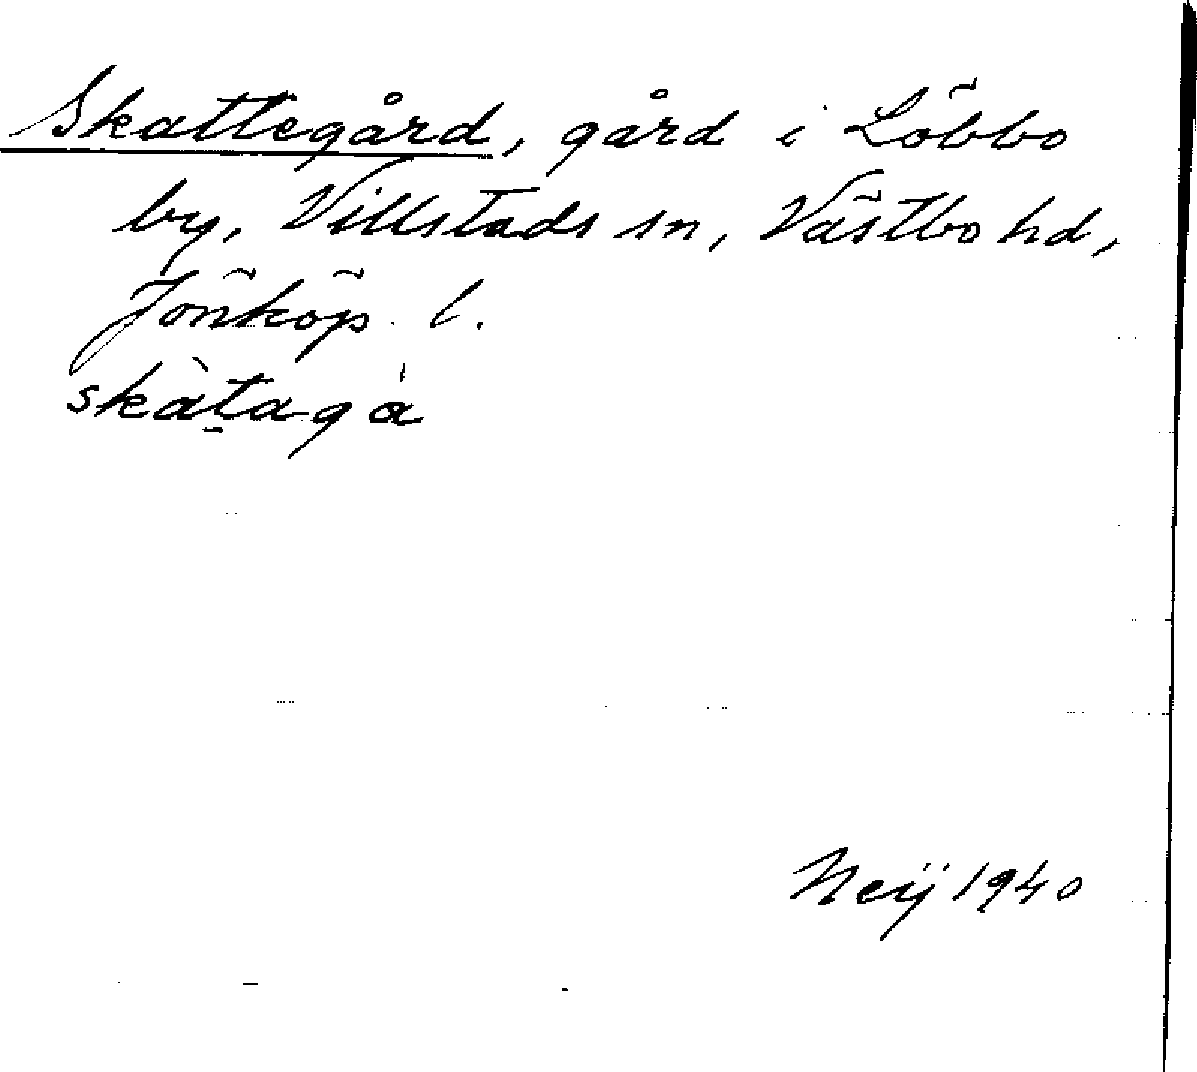 Skattegård, gård i Löbbo
by, Villstads sn, Västbo hd,
Jönköp. l.
skàt̠agá
Neij 1940